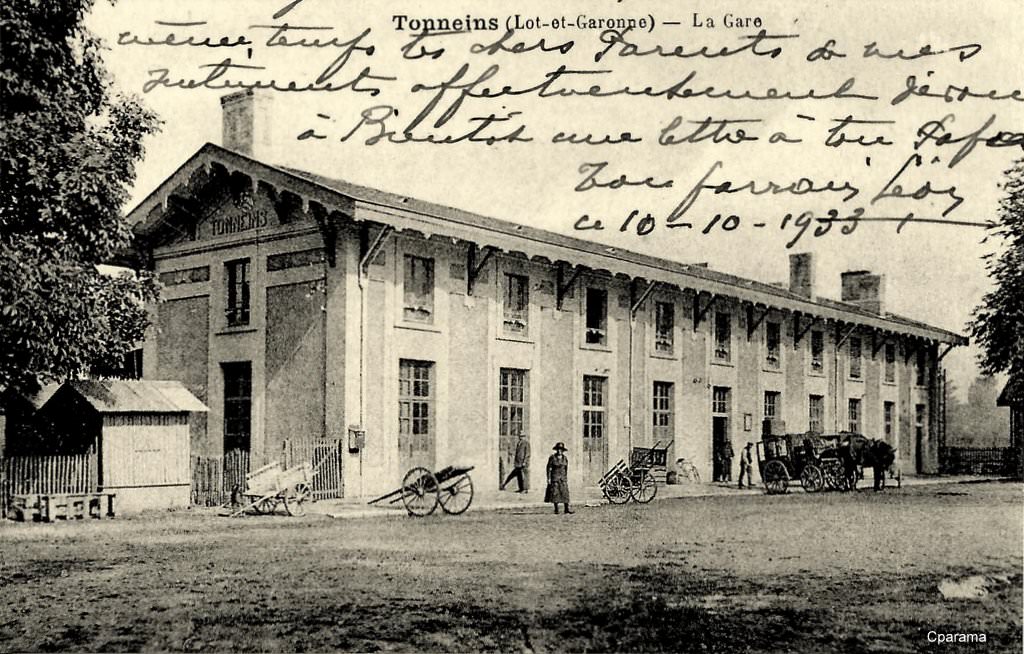 Tonneins (Lot-et-Garonne) — La Gare
même temps tes chers Parents & mes
affectueusement
à Bientôt une lettre à ton
Ton parrain Léon
ce 10-10-1933
TONNEINS
Cparama